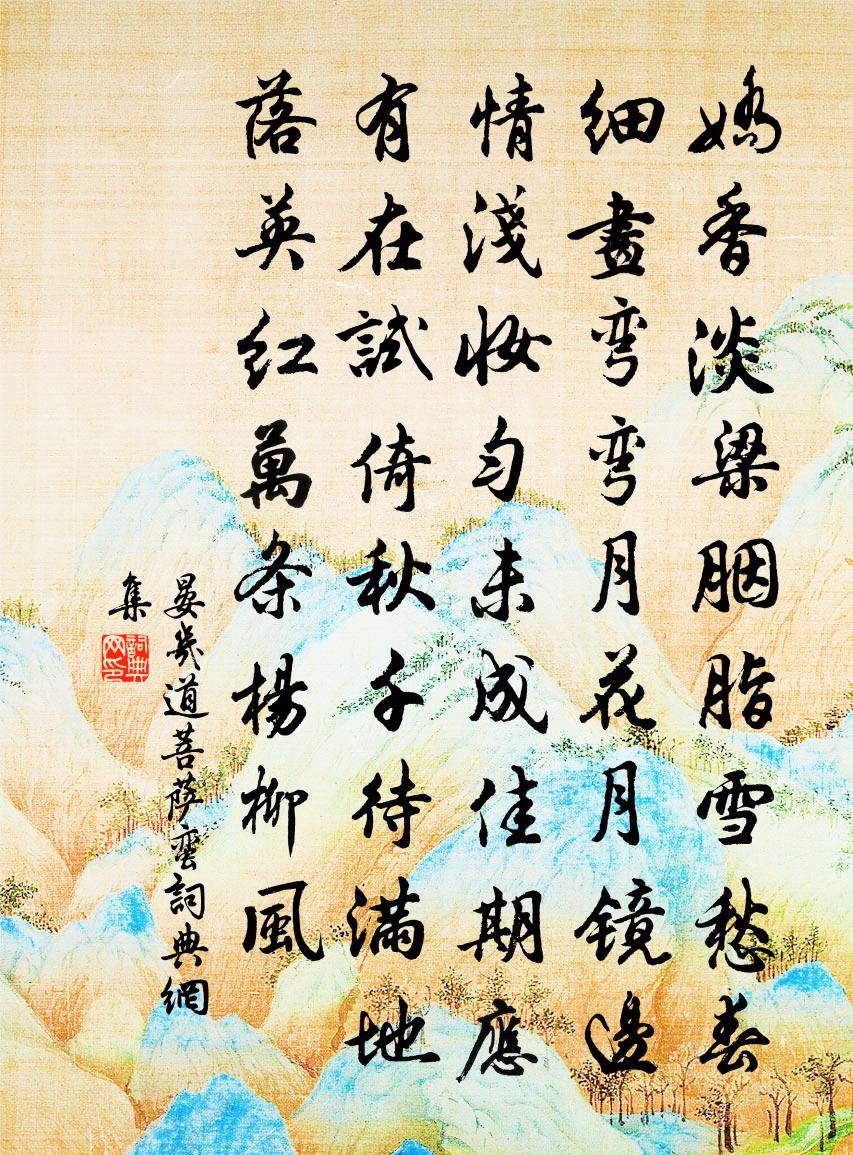 嬌香淡梁胭脂雪愁春
細畫弯弯月花月鏡邊
情淺妝勻未成佳期應
有在試倚秋千待滿地
落英红萬条楊柳風
晏幾道菩薩蛮詞典網
集
詞典網印